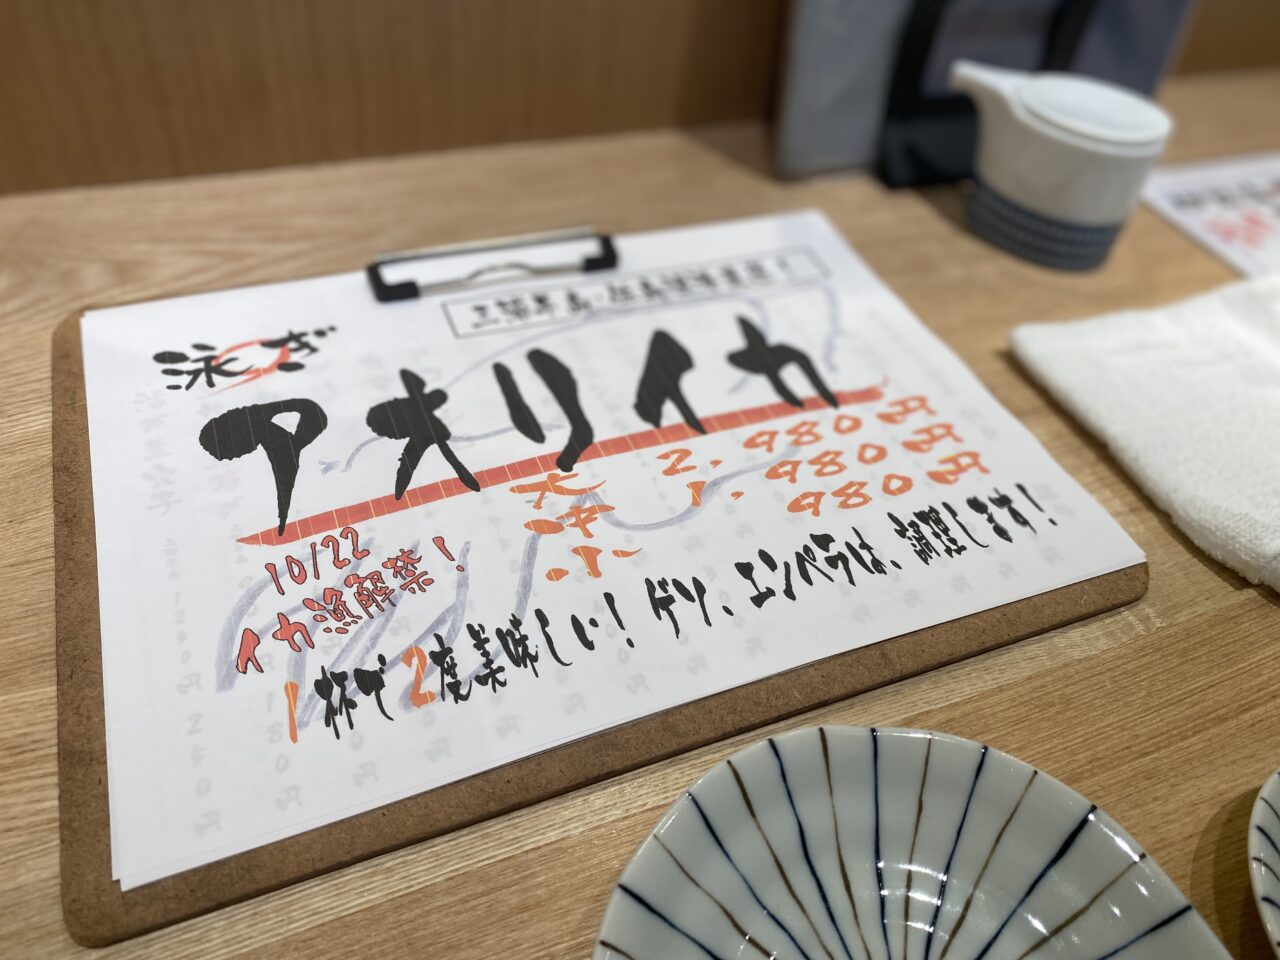 泳ぎ
アオリイカ
大 2.980円
中 1.980円
小 980円
10/22
イカ漁解禁!
1杯で2度美味しい!ゲソ、エンペラは、調理します!